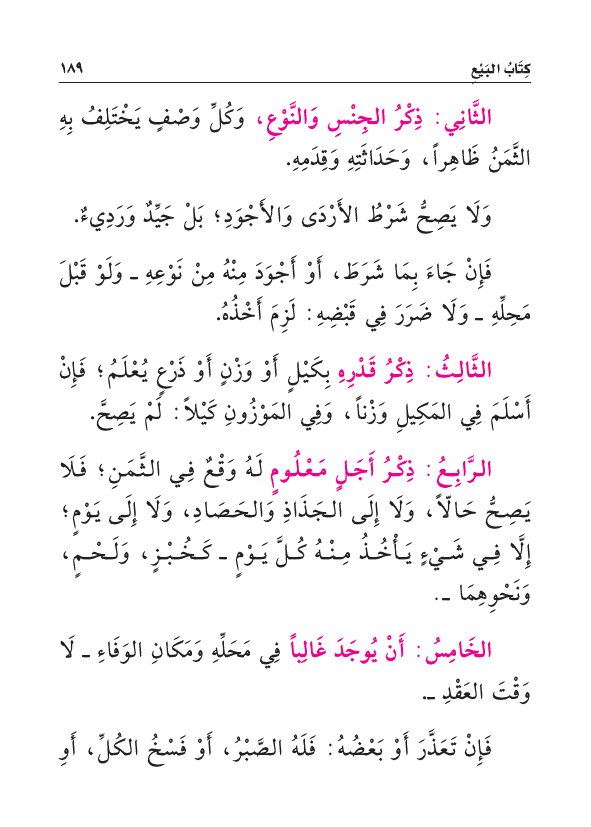 كِتَابُ البَيْعِ ١٨٩
الثَّانِي: ذِكْرُ الجِنْسِ وَالنَّوْعِ، وَكُلِّ وَصْفٍ يَخْتَلِفُ بِهِ
الثَّمَنُ ظَاهِراً، وَحَدَاثَتِهِ وَقِدَمِهِ.
وَلَا يَصِحُّ شَرْطُ الأَرْدَى وَالأَجْوَدِ؛ بَلْ جَيِّدٌ وَرَدِيءٌ.
فَإِنْ جَاءَ بِمَا شَرَطَ، أَوْ أَجْوَدَ مِنْهُ مِنْ نَوْعِهِ ـ وَلَوْ قَبْلَ
مَحِلِّهِ ـ وَلَا ضَرَرَ فِي قَبْضِهِ: لَزِمَ أَخْذُهُ.
الثَّالِثُ: ذِكْرُ قَدْرِهِ بِكَيْلٍ أَوْ وَزْنٍ أَوْ ذَرْعٍ يُعْلَمُ؛ فَإِنْ
أَسْلَمَ فِي المَكِيلِ وَزْناً، وَفِي المَوْزُونِ كَيْلاً: لَمْ يَصِحَّ.
الرَّابِعُ: ذِكْرُ أَجَلٍ مَعْلُومٍ لَهُ وَقْعٌ فِي الثَّمَنِ؛ فَلَا
يَصِحُّ حَالّاً، وَلَا إِلَى الجَذَاذِ وَالحَصَادِ، وَلَا إِلَى يَوْمٍ؛
إِلَّا فِي شَيْءٍ يَأْخُذُ مِنْهُ كُلَّ يَوْمٍ ـ كَخُبْزٍ، وَلَحْمٍ،
وَنَحْوِهِمَا ـ.
الخَامِسُ: أَنْ يُوجَدَ غَالِباً فِي مَحَلِّهِ وَمَكَانِ الوَفَاءِ ـ لَا
وَقْتَ العَقْدِ ـ.
فَإِنْ تَعَذَّرَ أَوْ بَعْضُهُ: فَلَهُ الصَّبْرُ، أَوْ فَسْخُ الكُلِّ، أَوِ